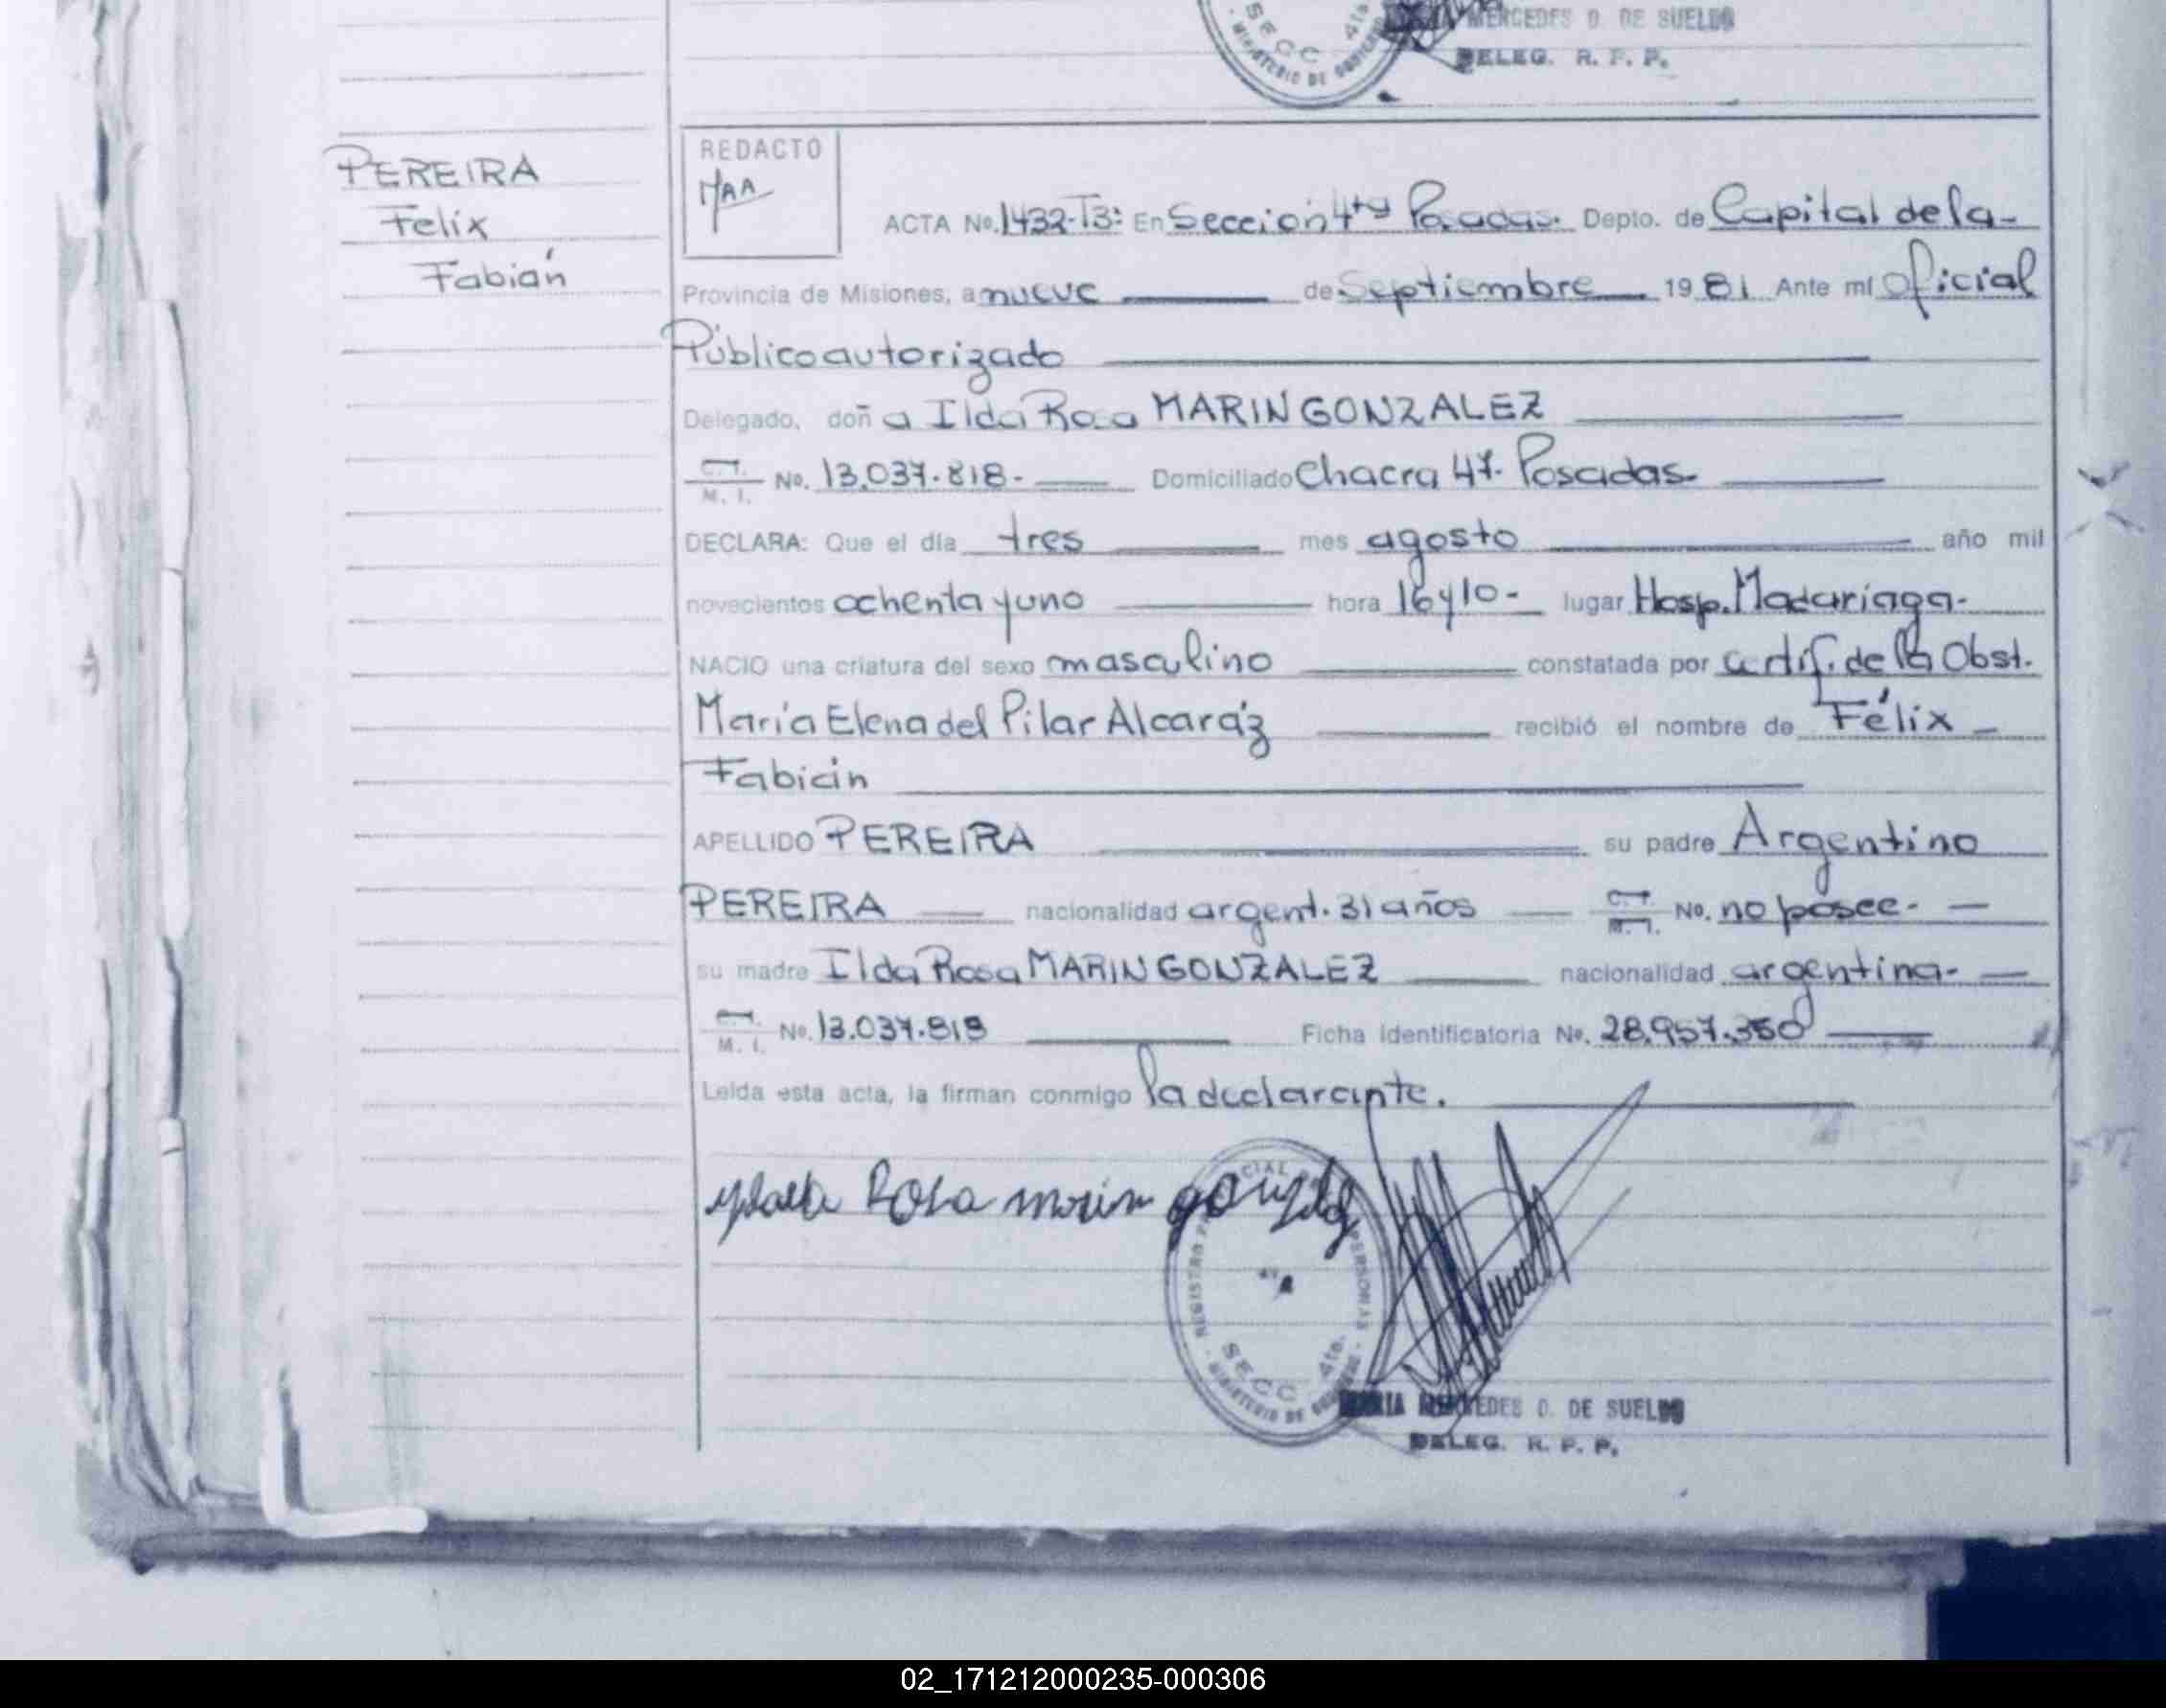 MERCEDES D. DE SUELDO
SECC 4ta
MINISTERIO DE GOBIERNO
DELEG. R. P. P.
PEREIRA
Felix
Fabián
REDACTO
MAA
ACTA No. 1432-T3: En Sección 4ta Posadas. Depto. de Capital de la-
Provincia de Misiones, a nueve de Septiembre 19 81 Ante mí Oficial
Público autorizado
Delegado, doñ a Ilda Rosa MARIN GONZALEZ
C.I. M. I. No. 13.037.818.- Domiciliado Chacra 47. Posadas.
DECLARA: Que el día tres mes agosto año mil
novecientos ochenta y uno hora 16 y 10- lugar Hosp. Madariaga-
NACIO una criatura del sexo masculino constatada por certif. de la Obst.
María Elena del Pilar Alcaráz recibió el nombre de Félix
Fabián
APELLIDO PEREIRA su padre Argentino
PEREIRA nacionalidad argent. 31 años C.I. M. I. No. no posee.-
su madre Ilda Rosa MARIN GONZALEZ nacionalidad argentina.-
C.I. M. I. No. 13.037.818 Ficha Identificatoria No. 28.957.350
Leída esta acta, la firman conmigo la declarante.
Rosa marin gonzalez
REGISTRO PERSONAS
SECC 4ta.
MINISTERIO DE GOBIERNO
MARIA MERCEDES D. DE SUELDO
DELEG. R. P. P.
02_171212000235-000306